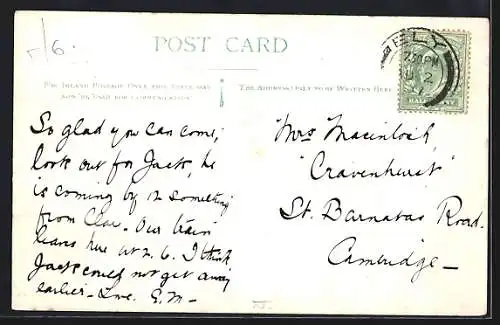 5/6.
POST CARD
FOR INLAND POSTAGE ONLY THIS SPACE MAY
NOW BE USED FOR COMMUNICATION
THE ADDRESS ONLY TO BE WRITTEN HERE
ELY
7.30 PM
2
HALFPENNY
So glad you can come;
look out for Jack, he
is coming by 12 something
from Clare. Our train
leaves here at 2. 6. I think
Jack could not get away
earlier - Love. E.M -
Mrs Macintosh
"Cravenhurst"
St. Barnabas Road.
Cambridge -